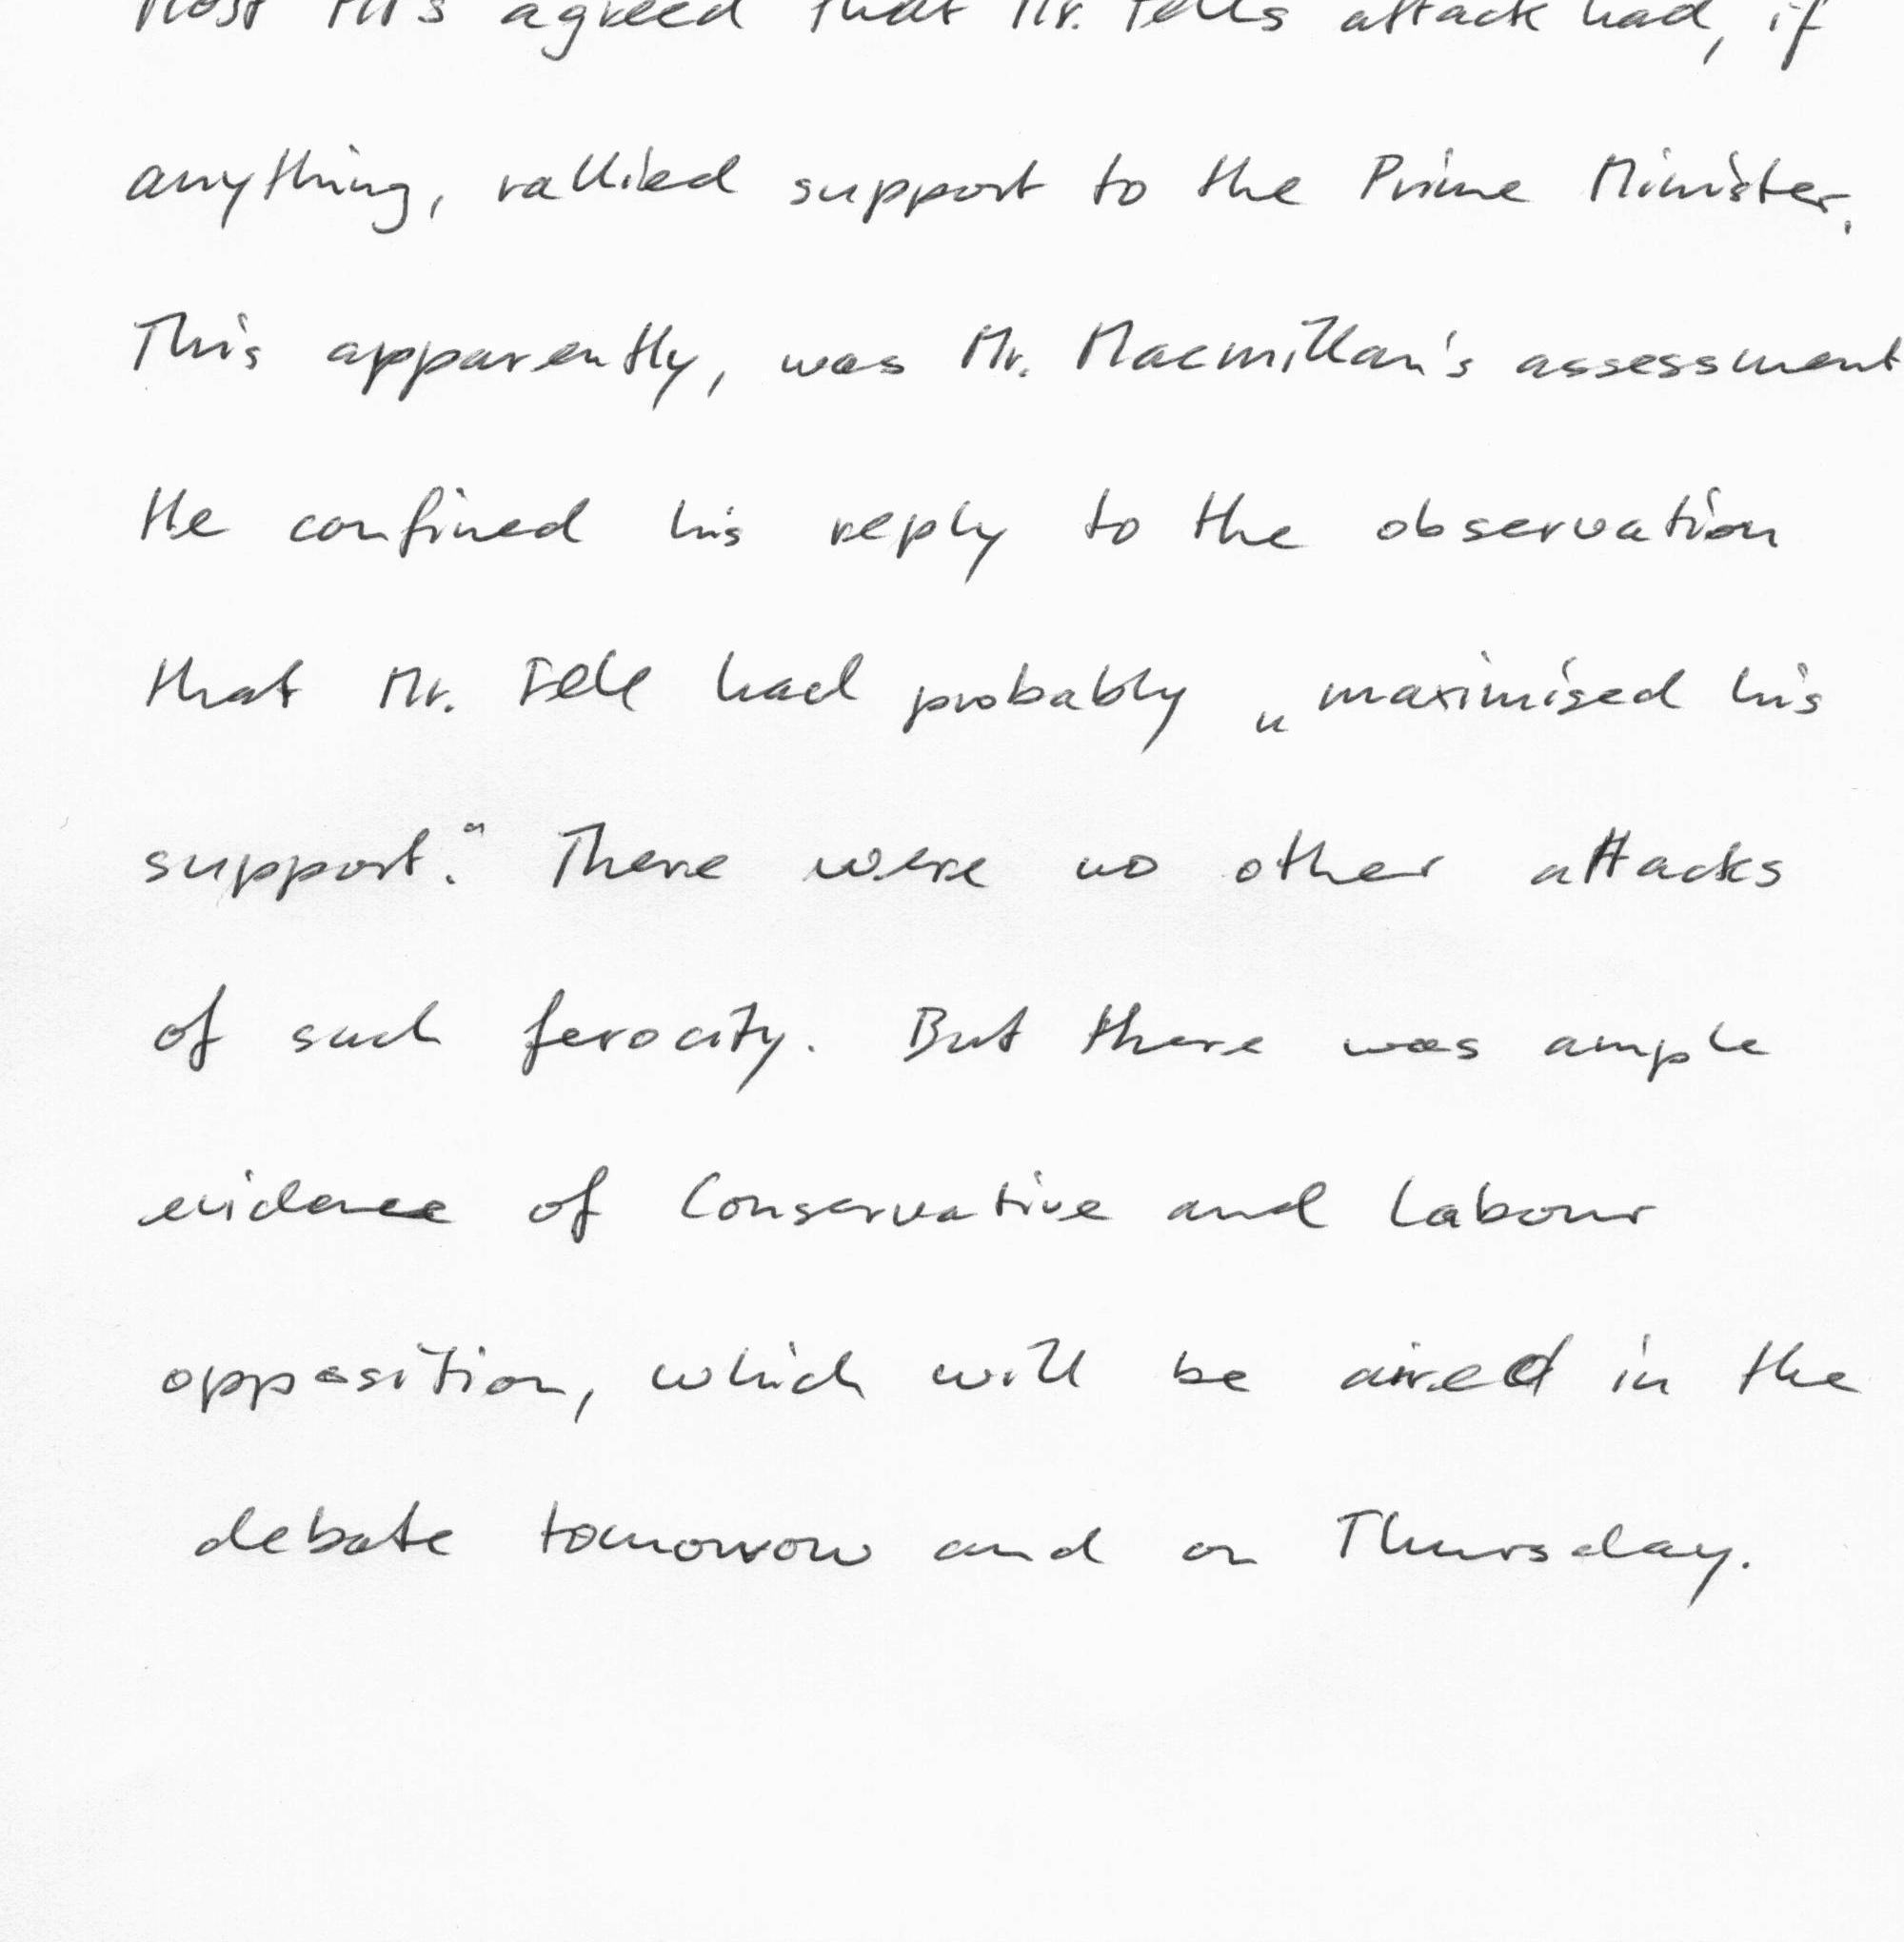 Most MPs agreed that Mr. Fells attack had, if
anything, rallied support to the Prime Minister.
This apparently, was Mr. Macmillan's assessment
He confined his reply to the observation
that Mr. Fell had probably „maximised his
support." There were no other attacks
of such ferocity. But there was ample
evidence of Conservative and Labour
opposition, which will be aired in the
debate tomorrow and on Thursday.